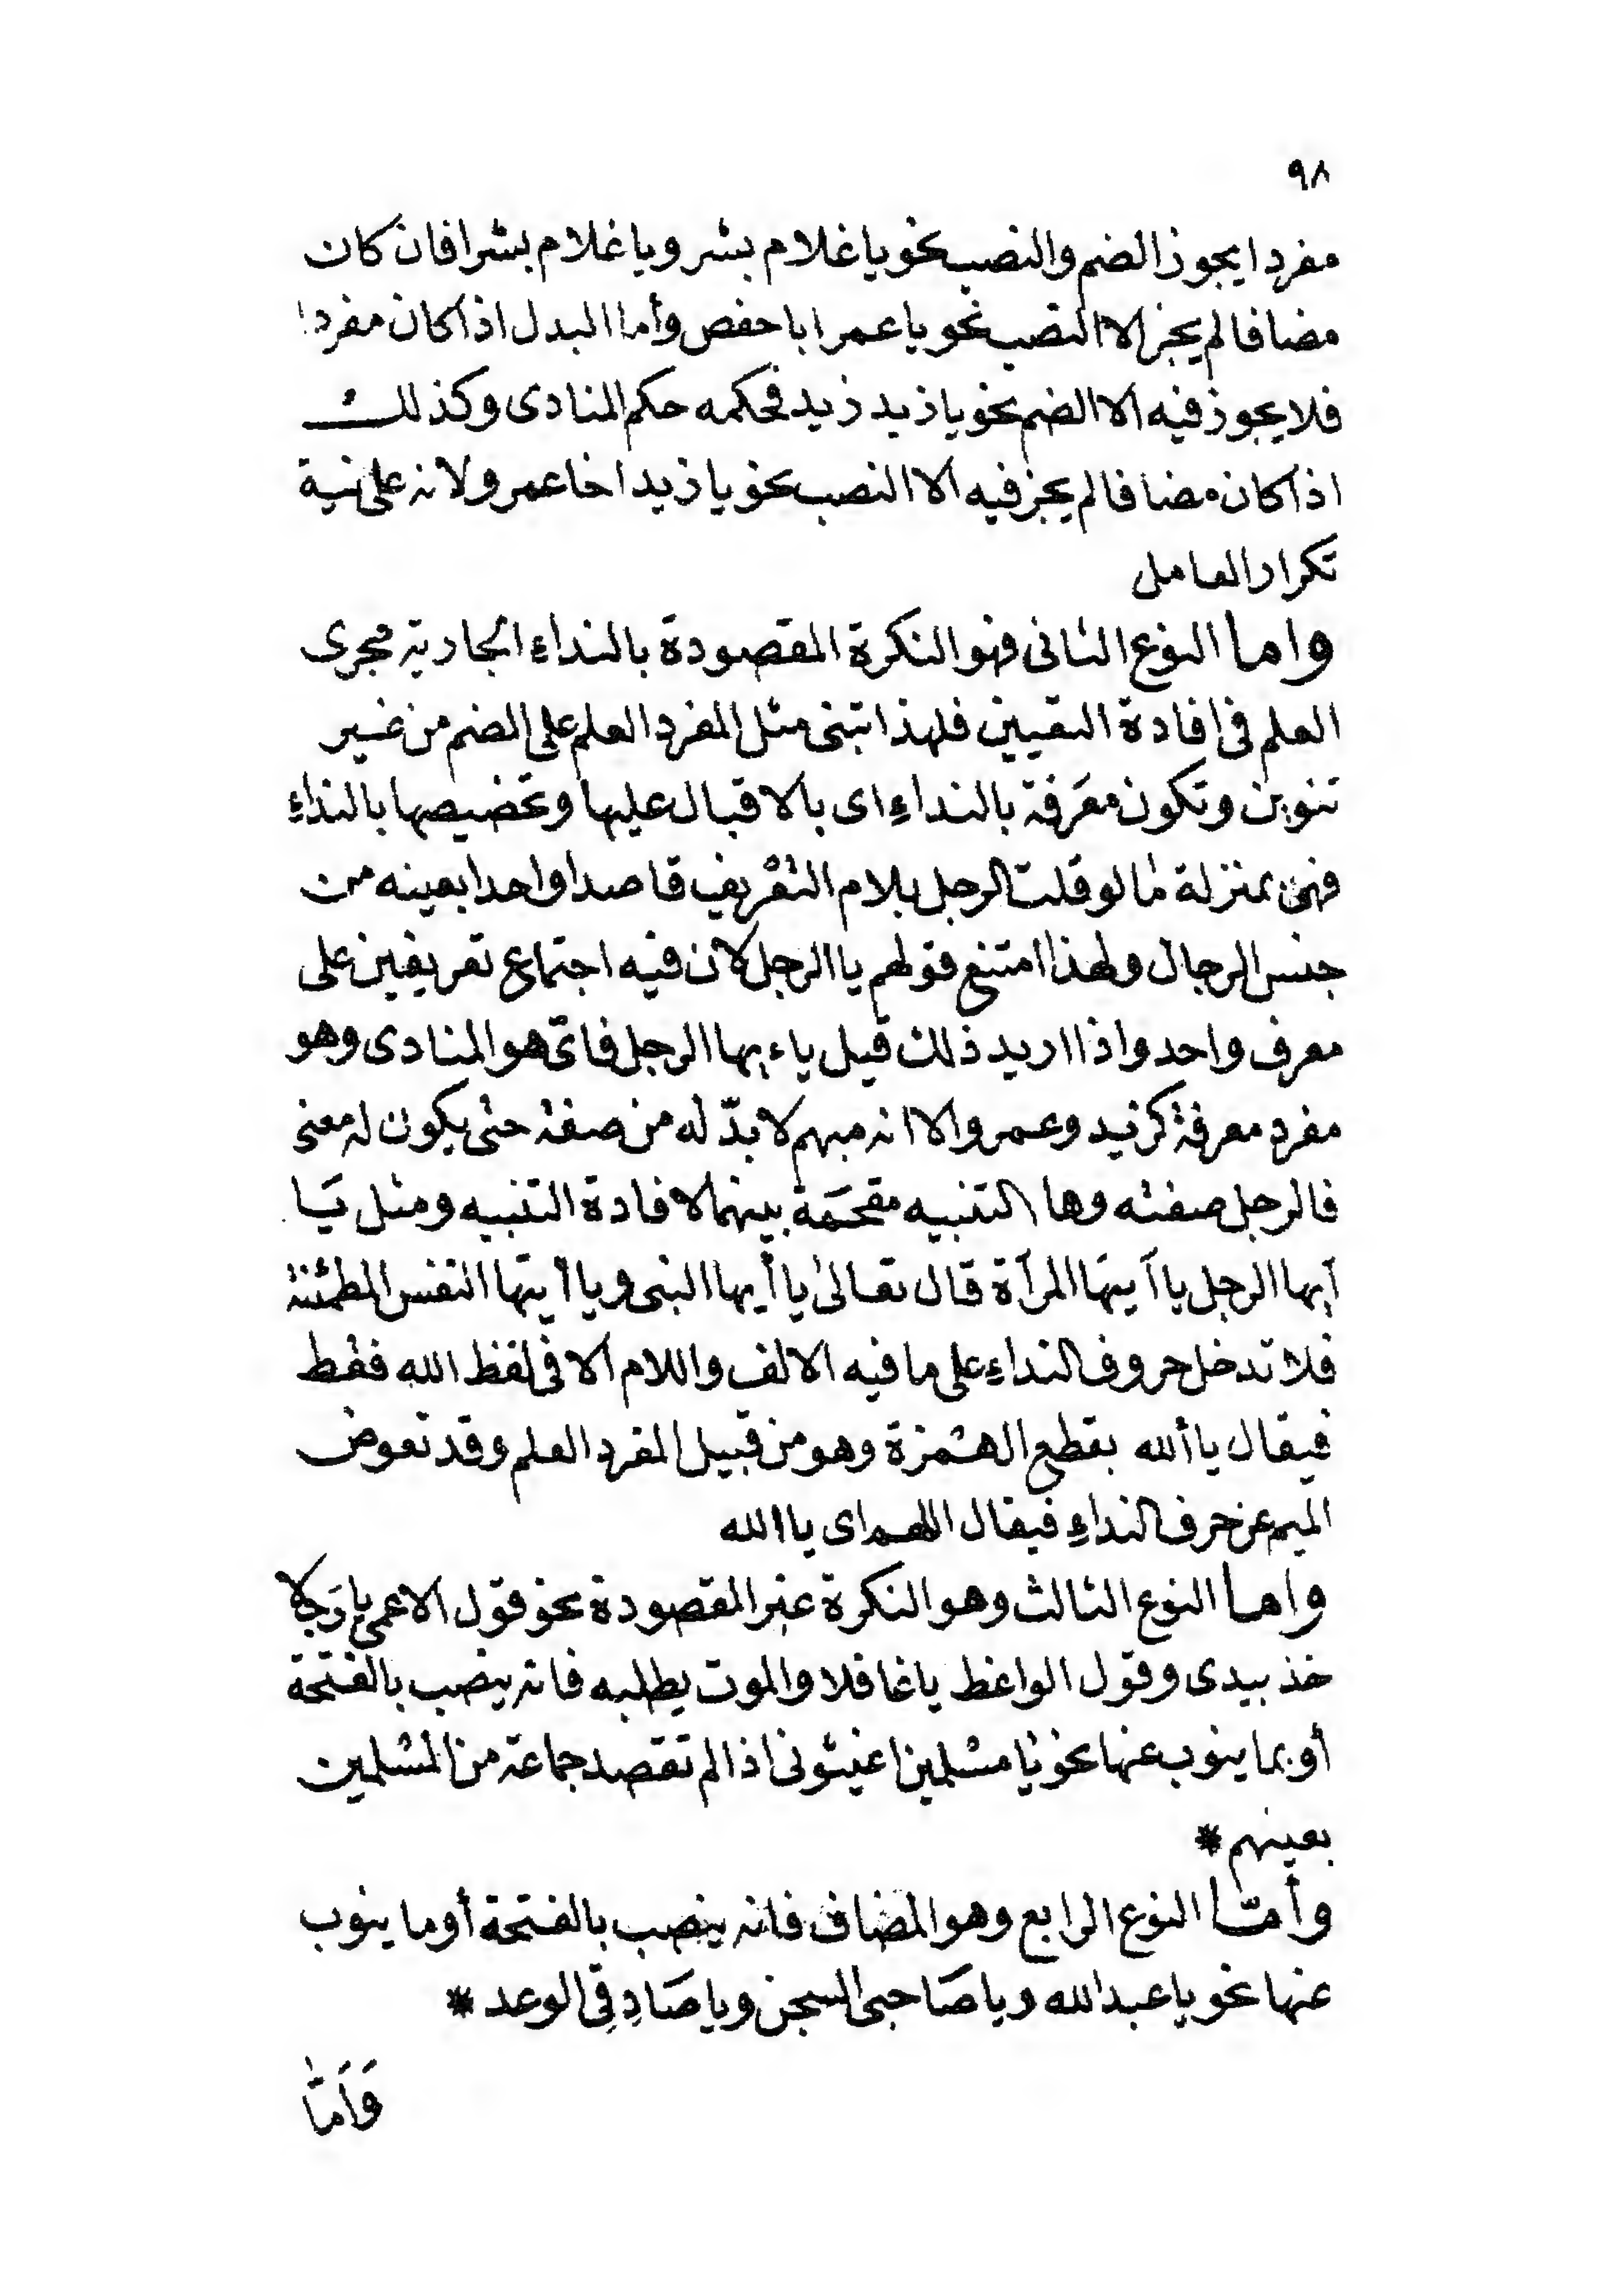 ٩٨
مفردا يجوز الضم والنصب نحو يا غلام بشر ويا غلام بشرا فان كان
مضافا لم يجز الا النصب نحو يا عمر ابا حفص وأما البدل اذا كان مفردا
فلا يجوز فيه الا الضم نحو يا زيد زيد فحكمه حكم المنادى وكذلك
اذا كان مضافا لم يجز فيه الا النصب نحو يا زيد اخا عمرو لانه على نية
تكرار العامل
واما النوع الثانى فهو النكرة المقصودة بالنداء الجارية مجرى
العلم فى افادة التعيين فلهذا تبنى مثل المفرد العلم على الضم من غير
تنوين وتكون معرفة بالنداء اى بالاقبال عليها وتخصيصها بالنداء
فهى بمنزلة ما لو قلت الرجل بلام التعريف قاصدا واحدا بعينه من
جنس الرجال ولهذا امتنع قولهم يا الرجل لان فيه اجتماع تعريفين على
معرف واحد واذا اريد ذلك قيل ياءيها الرجل فاىّ هو المنادى وهو
مفرد معرفة كزيد وعمرو الا انه مبهم لا بدّ له من صفة حتى يكون له معنى
فالرجل صفته وها التنبيه مقحمة بينهما لافادة التنبيه ومثل يَا
آيها الرجل يا آيتها المرآة قال تعالى يا أيها النبى ويا أيتها النفس المطمئنة
فلا تدخل حروف النداء على ما فيه الالف واللام الا فى لفظ الله فقط
فيقال يا ألله بقطع الهمزة وهو من قبيل المفرد العلم وقد تعوض
الميم عن حرف النداء فيقال اللهم اى يا الله
واما النوع الثالث وهو النكرة غير المقصودة نحو قول الاعمى يا رَجلا
خذ بيدى وقول الواعظ يا غافلا والموت يطلبه فانه ينصب بالفتحة
أو بما ينوب عنها نحو يا مسلمين اغيثونى اذا لم تقصد جماعة من المسلمين
بعينهم *
وأمّا النوع الرابع وهو المضاف فانه ينصب بالفتحة أو ما ينوب
عنها نحو يا عبد الله ويا صَاحبى السجن ويا صَادِقِى الوعد *
وَأَمَّا